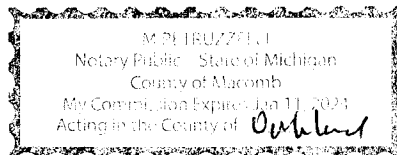 M PETRUZZELLI
Notary Public - State of Michigan
County of Macomb
My Commission Expires Jan 11, 2024
Acting in the County of Oakland